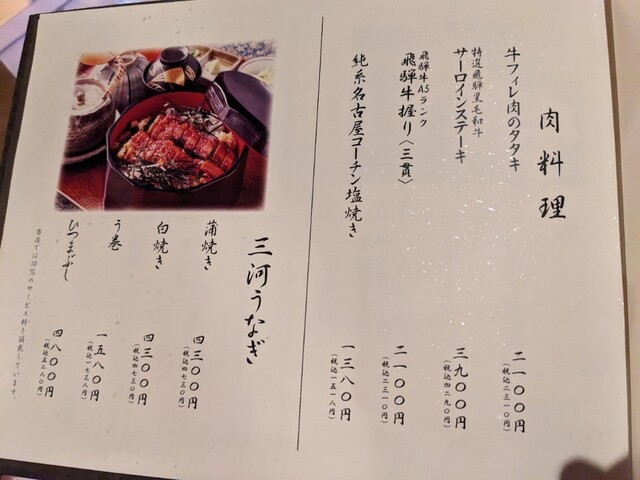 肉料理
牛フィレ肉のタタキ
二一〇〇円
(税込二三一〇円)
特選飛騨黒毛和牛
サーロインステーキ
三九〇〇円
(税込四二九〇円)
飛騨牛A5ランク
飛騨牛握り〈三貫〉
二一〇〇円
(税込二三一〇円)
純系名古屋コーチン塩焼き
一三八〇円
(税込一五一八円)
三河うなぎ
蒲焼き
四三〇〇円
(税込四七三〇円)
白焼き
四三〇〇円
(税込四七三〇円)
う巻
一五八〇円
(税込一七三八円)
ひつまぶし
四八〇〇円
(税込五二八〇円)
のサービス料を頂戴しています。